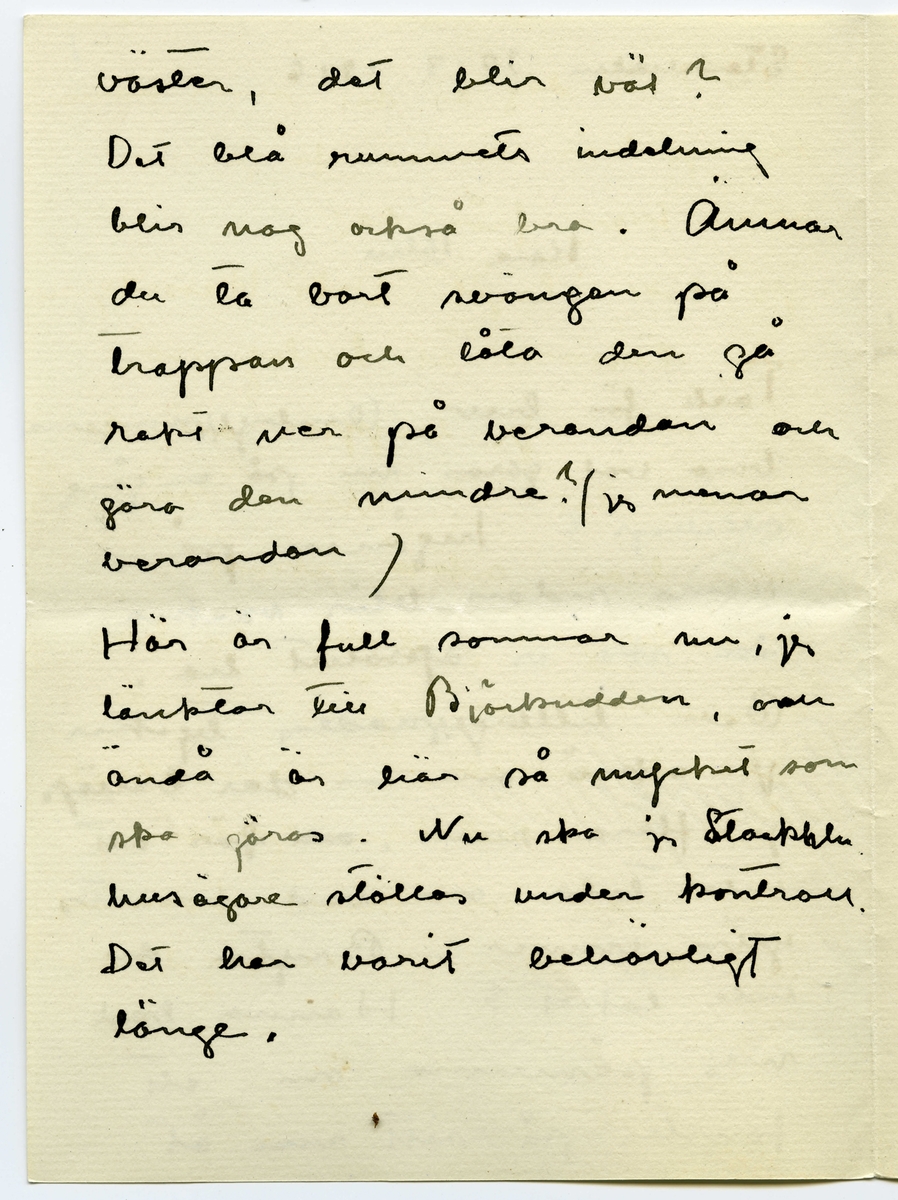 väster, det blir väl?
Det blå rummets indelning
blir nog också bra. Ämnar
du ta bort svängen på
trappan och låta den gå
rakt ner på verandan och
göra den mindre? (jag menar
verandan)
Här är full sommar nu, jag
länktar till Björkudden, men
ändå är här så mycket som
ska göras. Nu ska ju Stockholm
husägare ställas under kontroll.
Det har varit behövligt
länge.